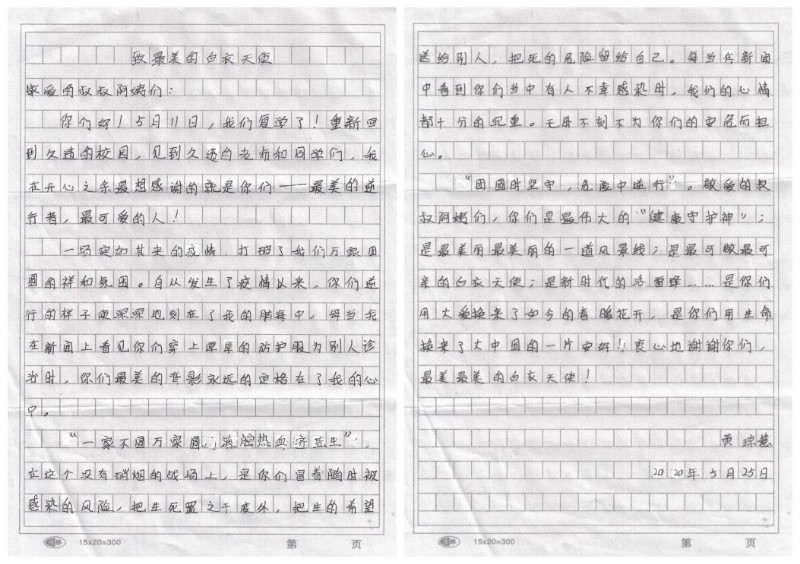 致最美的白衣天使
敬爱的叔叔阿姨们：
你们好！5月11日，我们复学了！重新回
到久违的校园，见到久违的老师和同学们，我
在开心之余最想感谢的就是你们——最美的逆
行者，最可爱的人！
一场突如其来的疫情，打破了我们万家团
圆的祥和氛围。自从发生了疫情以来，你们逆
行的样子便深深地刻在了我的脑海中，每当我
在新闻上看见你们穿上厚厚的防护服为别人诊
治时，你们最美的背影永远的定格在了我的心
中。
“一家不圆万家圆，满腔热血济苍生”，
在这个没有硝烟的战场上，是你们冒着随时被
感染的风险，把生死置之于度外，把生的希望
15×20=300
第 页
送给别人，把死的危险留给自己。每当在新闻
中看到你们当中有人不幸感染时，我们的心情
都十分的沉重。无时不刻不为你们的安危而担
心。
“团圆时坚守，危险中逆行”。敬爱的叔
叔阿姨们，你们是最伟大的“健康守护神”；
是最美丽最美丽的一道风景线；是最可敬最可
亲的白衣天使；是新时代的活雷锋……是你们
用大爱换来了如今的春暖花开，是你们用生命
换来了大中国的一片安好！衷心地谢谢你们，
最美最美的白衣天使！
黄琮慧
2020年5月25日
15×20=300
第 页